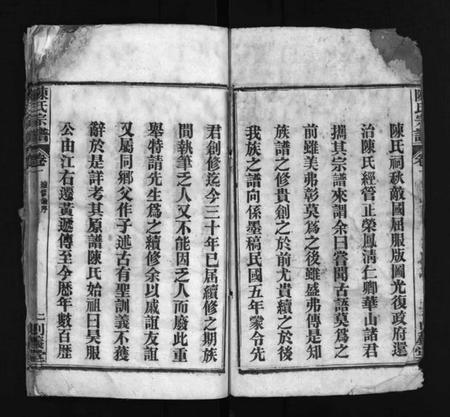 陳氏宗譜
陳氏祠秋敵國屈服版圖光復政府還
治陳氏經管正榮鳳清仁卿華山諸君
攜其宗譜來謂余曰嘗聞古語莫為之
前雖美弗彰莫為之後雖盛弗傳是知
族譜之修貴創之於前尤貴續之於後
我族之譜向係墨稿民國五年蒙令先
君創修迄今三十年已屆續修之期族
間執筆乏人又不能因乏人而廢此重
舉特請先生為之續修余以戚誼友誼
又屬同鄉父作子述古有聖訓義不獲
辭於是詳考其原譜陳氏始祖曰吳服
公由江右遷黃遞傳至今歷年數百歷
陳氏宗譜
卷一